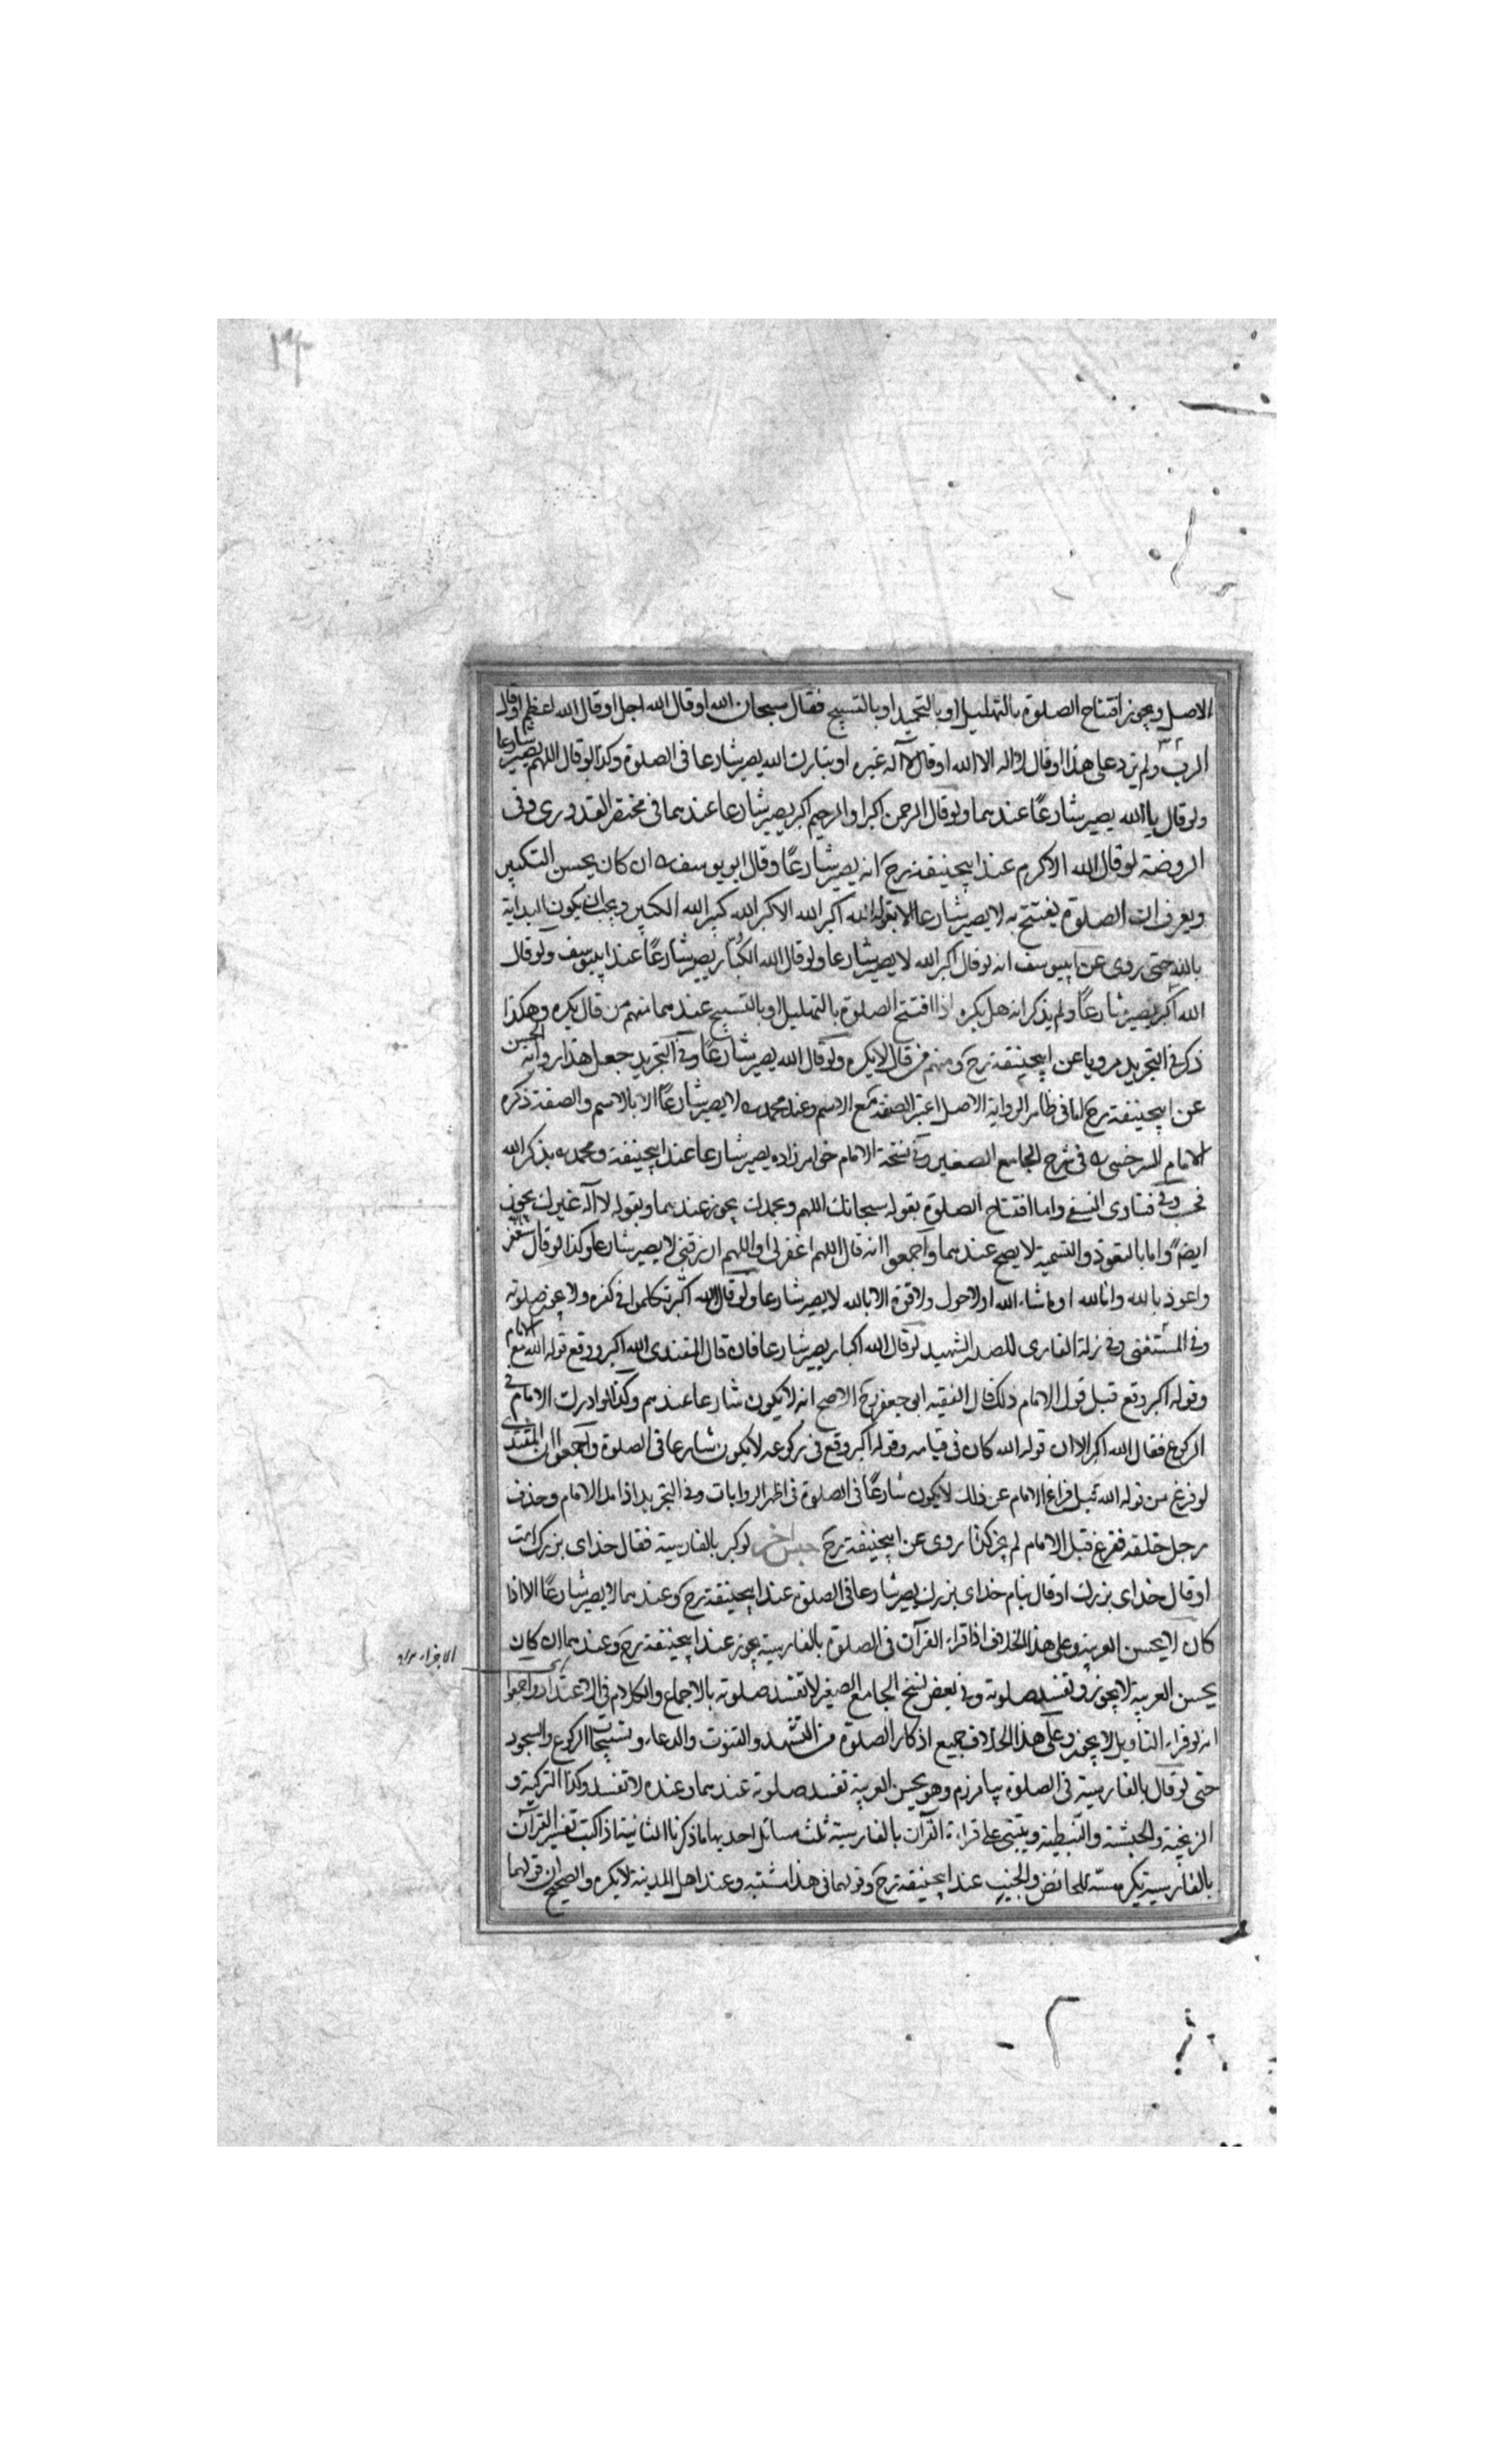 الاصل ويجوز افتتاح الصلوة بالتهليل او بالتحميد او بالتسبيح فقال سبحان الله او قال الله اجل او قال الله اعظم او قال
الرب ولم يزد على هذا او قال لا اله الا الله او قال لا اله غيره او تبارك الله يصير شارعا فى الصلوة وكذا لو قال اللهم يصير شارعا
ولو قال يا الله يصير شارعًا عندهما ولو قال الرحمن اكبر او الرحيم اكبر يصير شارعا عندهما فى مختصر القدورى وفى
الروضة لو قال الله الاكرم عند ابيحنيفة رح انه يصير شارعًا وقال ابو يوسف ان كان يحسن التكبير
ويعرف ان الصلوة يفتتح به لا يصير شارعا الا بقوله الله اكبر الله الاكبر الله كبير الله الكبير ويجب ان يكون البداية
بالله حتى روى عن ابييوسف انه لو قال اكبر الله لا يصير شارعا ولو قال الله الكبار يصير شارعًا عند ابييوسف ولو قال
الله اكبر يصير شارعًا ولم يذكر انه هل يكره اذا افتتح الصلوة بالتهليل او بالتسبيح عندهما منهم من قال يكره وهكذا
ذكر فى التجريد مرويا عن ابيحنيفة رح ومنهم من قال لا يكره ولو قال الله يصير شارعًا وفى التجريد جعل هذا رواية الحسن
عن ابيحنيفة رح اما فى ظاهر الرواية الاصل اعتبر الصفة مع الاسم وعند محمد لا يصير شارعًا الا بالاسم والصفة ذكره
الامام السرخسى فى شرح الجامع الصغير وفى نسخة الامام خواهر زاده يصير شارعا عند ابيحنيفة ومحمد بذكر الله
فحسب وفى فتاوى النسفى واما افتتاح الصلوة بقوله سبحانك اللهم وبحمدك يجوز عندهما وبقوله لا اله غيرك يجوز
ايضًا واما بالتعوذ والتسمية لا يصح عندهما واجمعوا انه قال اللهم اغفر لى او اللهم ارزقنى لا يصير شارعا وكذا لو قال استغفر الله
واعوذ بالله وانا لله او ما شاء الله او لا حول ولا قوة الا بالله لا يصير شارعا ولو قال الله اكبر تكلموا فى كفره ولا يجوز صلوته
وفى المستغنى وفى زلة القارى للصدر الشهيد لو قال الله اكبار يصير شارعا فان قال المقتدى الله اكبر ووقع قوله الله مع الامام
وقوله اكبر وقع قبل قول الامام ذلك قال الفقيه ابو جعفر رح الاصح انه لا يكون شارعا عندهم وكذا لو ادرك الامام فى
الركوع فقال الله اكبر الا ان قوله الله كان فى قيامه وقوله اكبر وقع فى ركوعه لا يكون شارعا فى الصلوة واجمعوا ان المقتدى
لو فرغ من قوله الله قبل فراغ الامام عن ذلك لا يكون شارعًا فى الصلوة فى اظهر الروايات وفى التجريد اذا مد الامام وحذف
رجل خلفه ففرغ قبل الامام لم يجز كذا روى عن ابيحنيفة رح جنس اخر لو كبر بالفارسية فقال خداى بزرك است
او قال خداى بزرك او قال بنام خداى بزرك يصير شارعا فى الصلوة عند ابيحنيفة رح وعندهما لا يصير شارعًا الا اذا
كان لا يحسن العربية وعلى هذا الخلاف اذا قراء القرآن فى الصلوة بالفارسية يجوز عند ابيحنيفة رح وعندهما ان كان
يحسن العربية لا يجوز وتفسد صلوته وفى بعض نسخ الجامع الصغير لا تفسد صلوته بالاجماع والكلام فى الاعتداد واجمعوا
انه لو قراء التاويل لا يجوز وعلى هذا الخلاف جميع اذكار الصلوة من التشهد والقنوت والدعاء وتسبيحات الركوع والسجود
حتى لو قال بالفارسية فى الصلوة بيامرزم وهو يحسن العربية تفسد صلوته عندهما وعنده لا تفسد وكذا التركية و
الزنجية والحبشية والنبطية ويبتنى على قراءة القرآن بالفارسية ثلث مسائل احديها ما ذكرنا الثانية اذا كتب تفسير القرآن
بالفارسية يكره مسه للحائض والجنب عند ابيحنيفة رح وقولهما فى هذا مشتبه وعند اهل المدينة لا يكره والصحيح ان قولهما